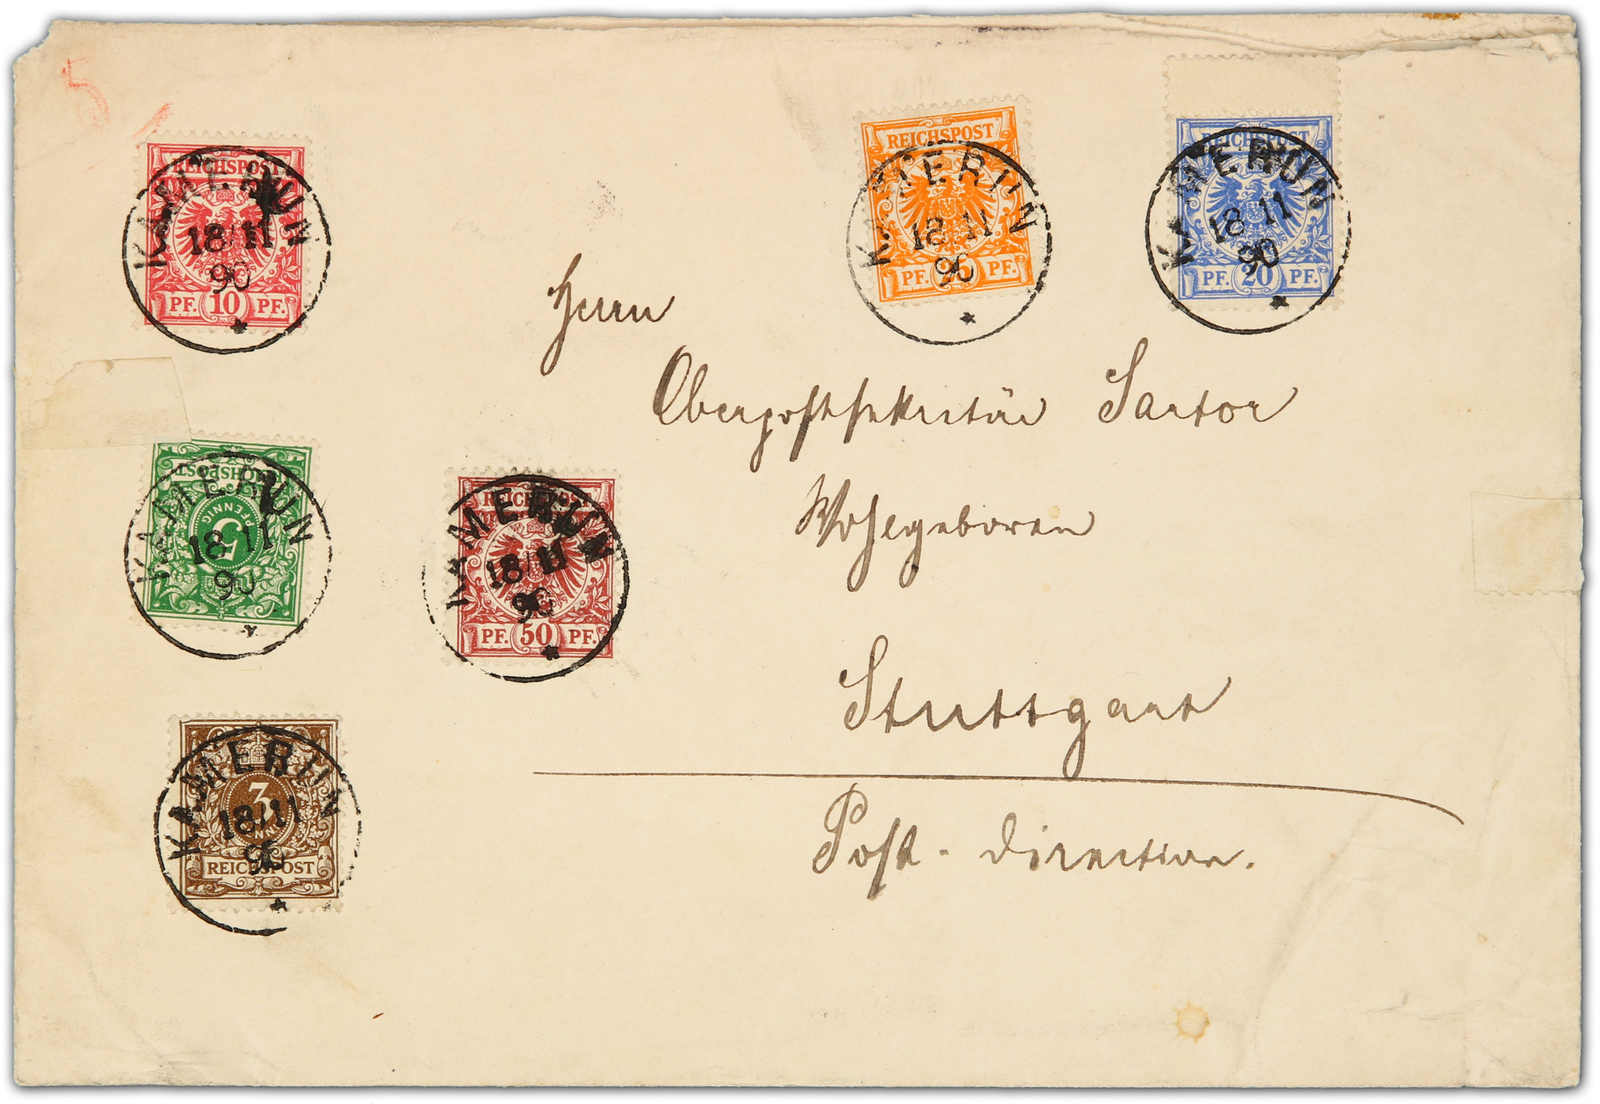 5
REICHSPOST
PF. 10 PF.
KAMERUN
18/11
90
REICHSPOST
PF. 25 PF.
KAMERUN
18/11
90
REICHSPOST
PF. 20 PF.
KAMERUN
18/11
90
Herrn
Oberpostsekretär Sartor
Wohlgeboren
Stuttgart
Post-direction.
REICHSPOST
5
PFENNIG
KAMERUN
18/11
90
REICHSPOST
PF. 50 PF.
KAMERUN
18/11
90
3
REICHSPOST
KAMERUN
18/11
90